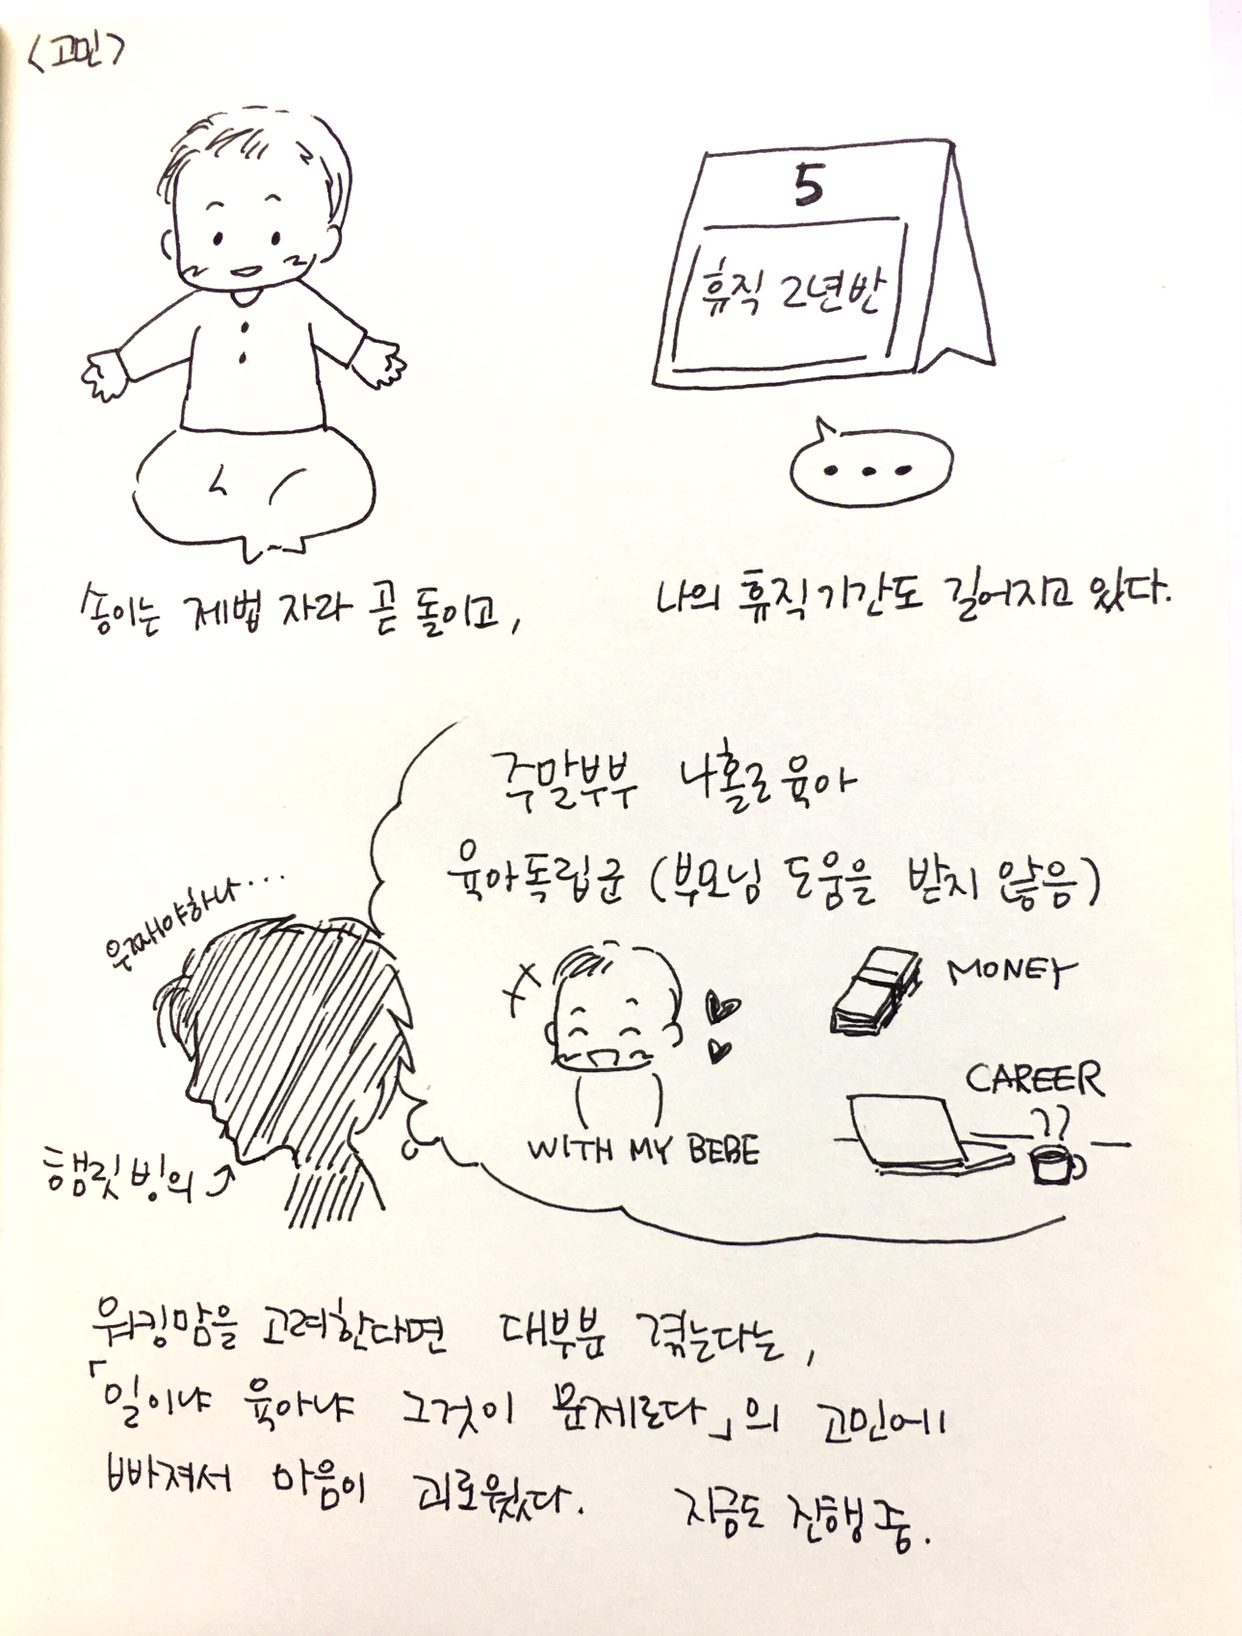 <고민>
5
휴직 2년반
...
송이는 제법 자라 곧 돌이고,
나의 휴직기간도 길어지고 있다.
주말부부 나홀로육아
육아독립군 (부모님 도움을 받지 않음)
우째야하나...
MONEY
CAREER
WITH MY BEBE
햄릿빙의
워킹맘을 고려한다면 대부분 겪는다는,
「일이냐 육아냐 그것이 문제로다」의 고민에
빠져서 마음이 괴로웠다. 지금도 진행중.